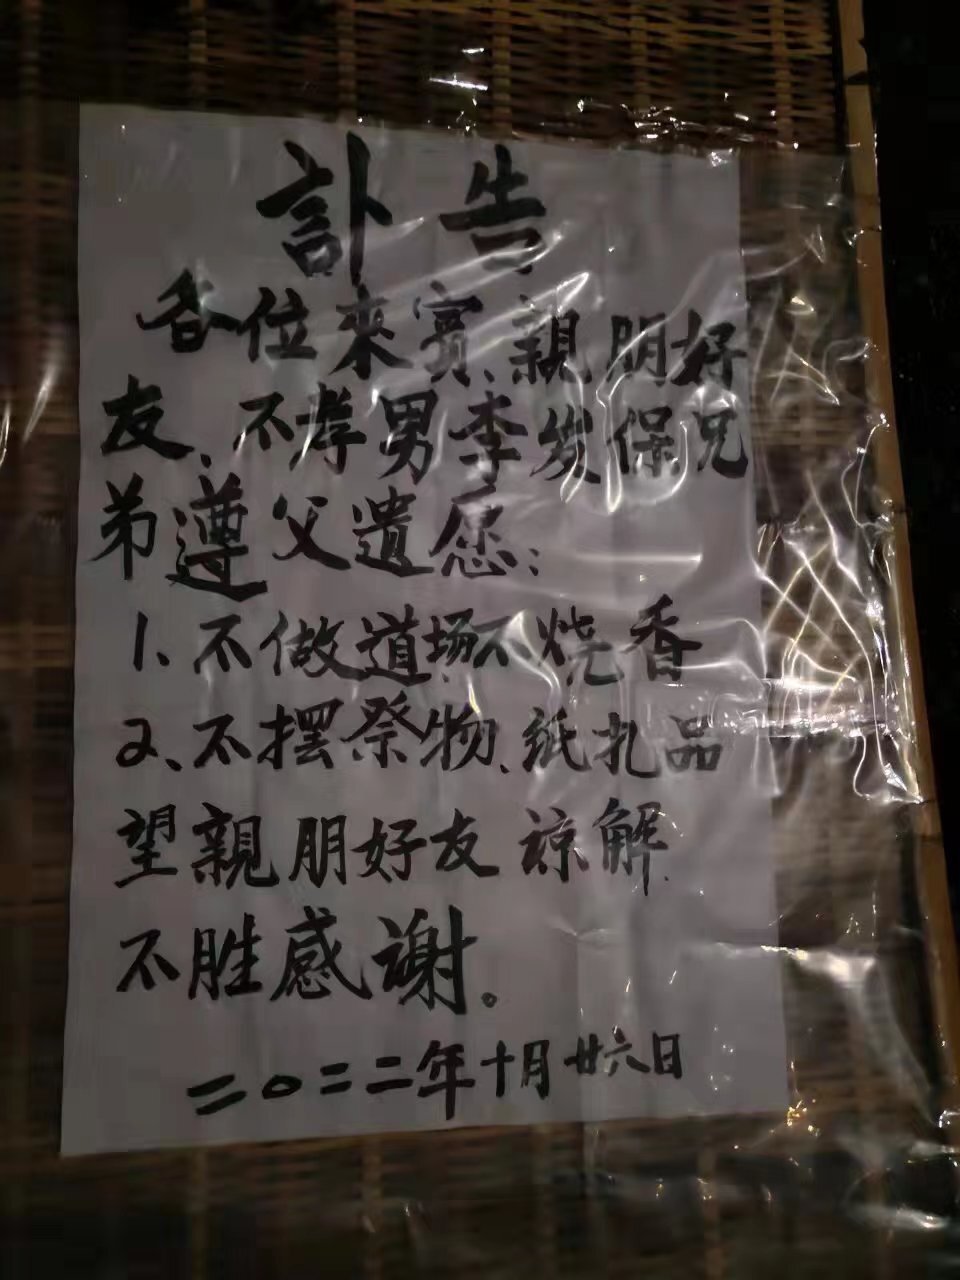 訃告
各位來賓、親朋好
友、不孝男李发保兄
弟遵父遺愿:
1、不做道场不烧香
2、不摆祭物、纸扎品
望親朋好友諒解
不胜感謝。
二〇二二年十月廿六日